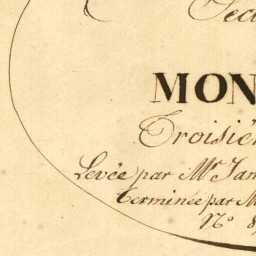 Sec
MON
Troisiè
Levée par Mr. Jam
terminée par M
N.º 8